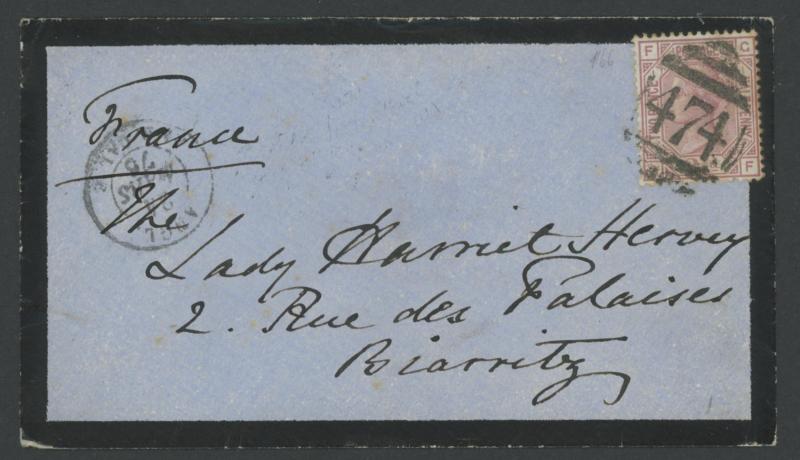 France
The
Lady Harriet Hervey
2. Rue des Palaises
Biarritz
474
F G
G F
ANGL.
166